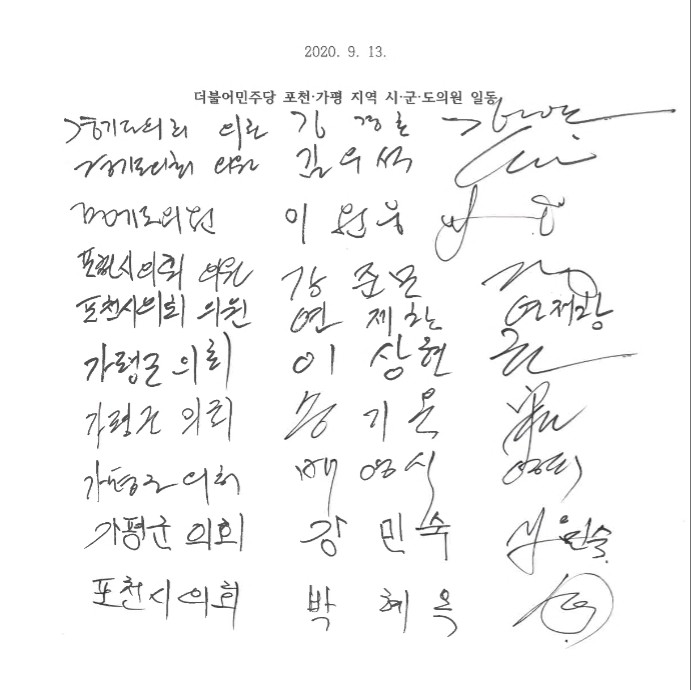 2020. 9. 13.
더불어민주당 포천·가평 지역 시·군·도의원 일동
경기도의회 의원 김경호
경기도의회 의원 김우석
경기도의원 이원웅
포천시의회 의원 강준모
포천시의회 의원 연제창 연제창
가평군 의회 이상현
가평군 의회 송기욱
가평군 의회 배영식
가평군 의회 강민숙 강민숙
포천시의회 박혜옥